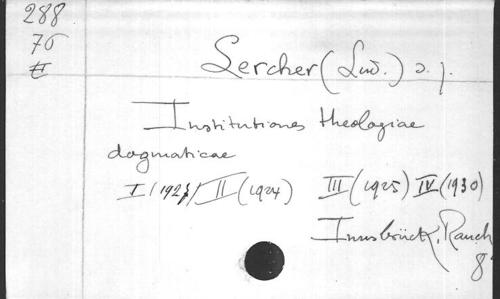 288
76
Lercher (Lud.) s. j.
Institutiones theologiae
dogmaticae
I (1927) II (1924) III (1925) IV (1930)
Innsbrück, Rauch
8°